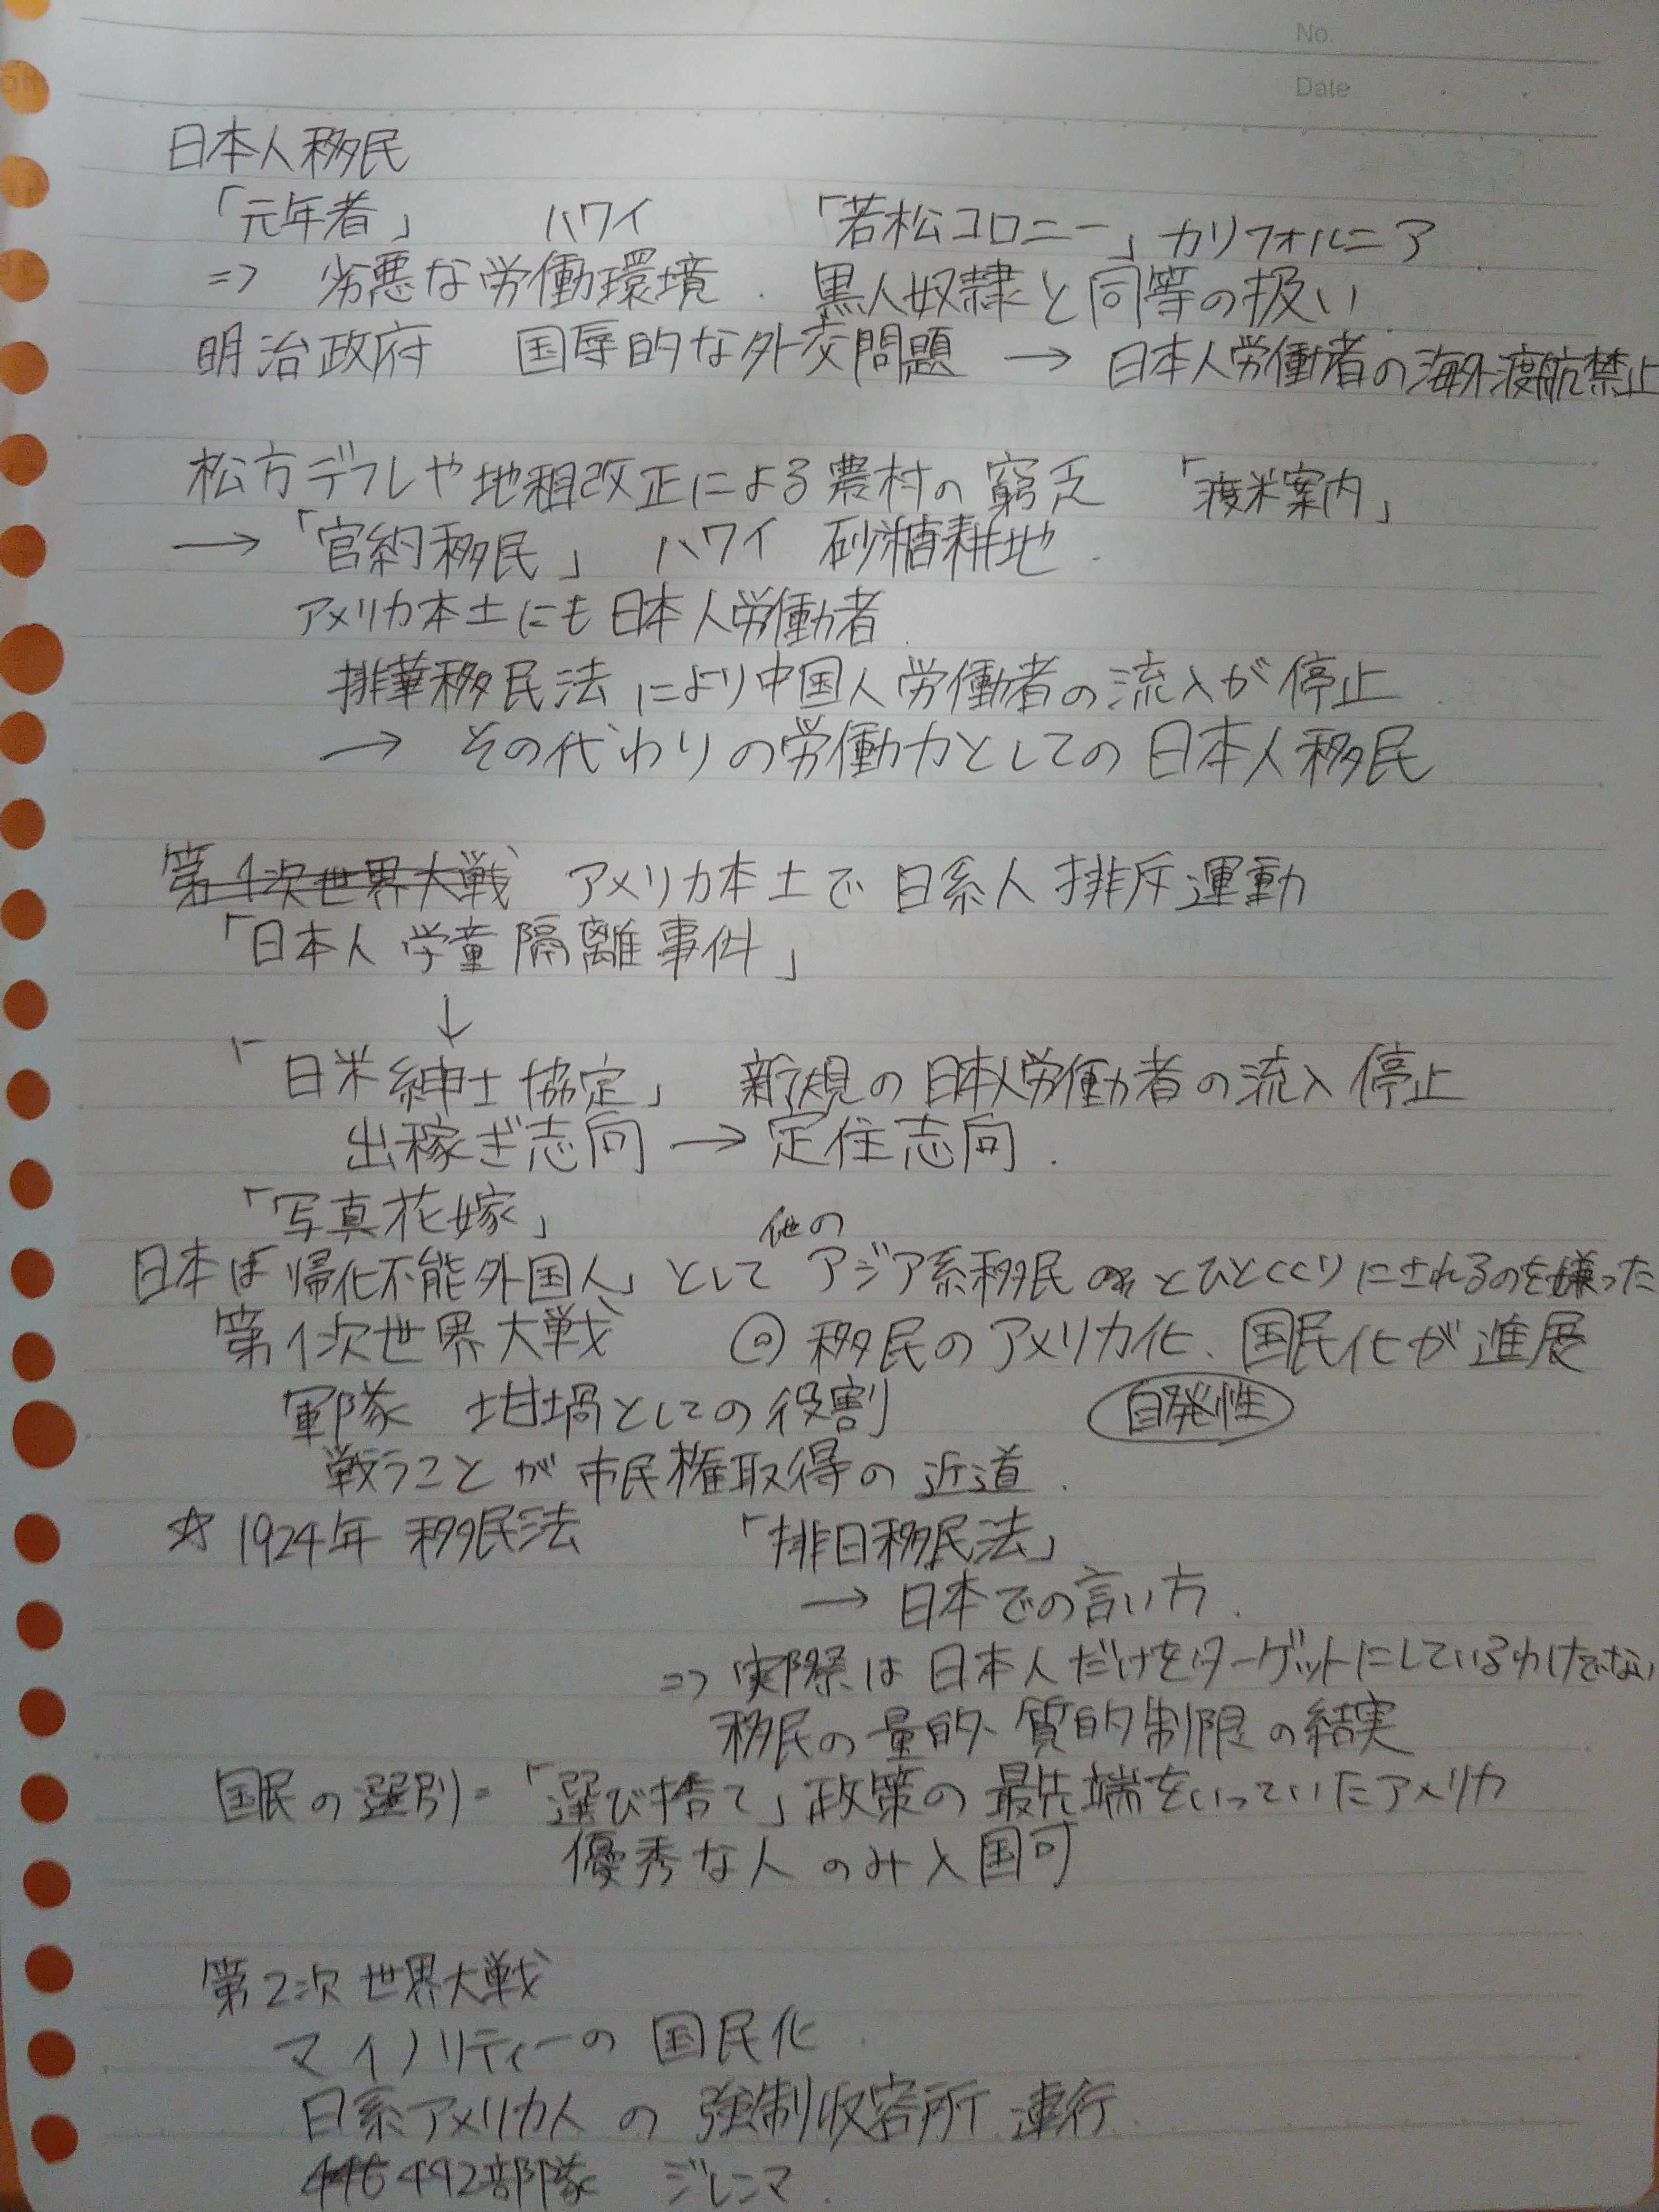 No.
Date
日本人移民
「元年者」 ハワイ 「若松コロニー」カリフォルニア
⇒ 劣悪な労働環境. 黒人奴隷と同等の扱い
明治政府 国辱的な外交問題 → 日本人労働者の海外渡航禁止
松方デフレや地租改正による農村の窮乏 「渡米案内」
→「官約移民」 ハワイ 砂糖耕地.
アメリカ本土にも日本人労働者.
排華移民法により中国人労働者の流入が停止.
→ その代わりの労働力としての日本人移民
第1次世界大戦 アメリカ本土で日系人排斥運動
「日本人学童隔離事件」
↓
「日米紳士協定」 新規の日本人労働者の流入停止
出稼ぎ志向 → 定住志向.
「写真花嫁」
他の
日本は「帰化不能外国人」としてアジア系移民とひとくくりにされるのを嫌った
第1次世界大戦 ◎移民のアメリカ化、国民化が進展
軍隊 坩堝としての役割 自発性
戦うことが市民権取得の近道.
☆1924年 移民法 「排日移民法」
→ 日本での言い方.
⇒ 実際は日本人だけをターゲットにしているわけでない
移民の量的、質的制限の結実
国民の選別=「選び捨て」政策の最先端をいっていたアメリカ
優秀な人のみ入国可
第2次世界大戦
マイノリティーの国民化
日系アメリカ人の強制収容所連行.
442部隊 ジレンマ.